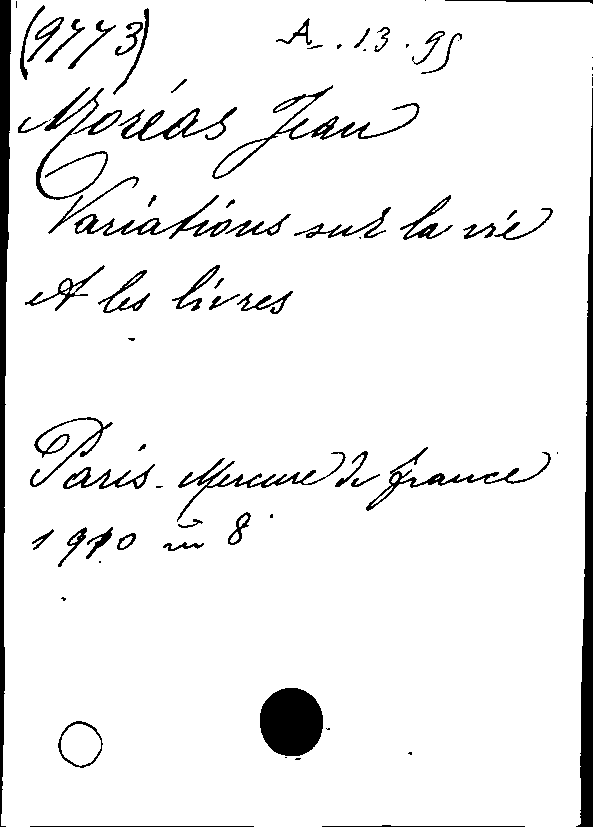 (9773) A. 13. 95
Moréas Jean
Variations sur la vie
et les livres
Paris - Mercure de france
1910 in 8°